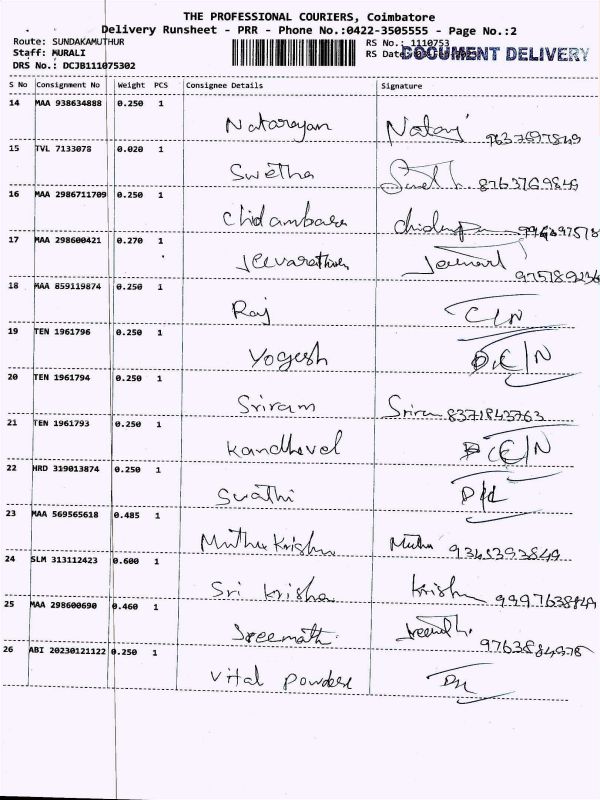 THE PROFESSIONAL COURIERS, Coimbatore
Delivery Runsheet - PRR - Phone No.:0422-3505555 - Page No.:2
Route: SUNDAKAMUTHUR
RS No.: 1110753
Staff: MURALI
RS Date
DOCUMENT DELIVERY
DRS No.: DCJB111075302
S No Consignment No Weight PCS Consignee Details Signature
14 MAA 938634888 0.250 1 Natarayan
15 TVL 7133078 0.020 1 Swetha 8763769849
16 MAA 2986711709 0.250 1 Chidambara
17 MAA 298600421 0.270 1
18 MAA 859119874 0.250 1 Raj C/N
19 TEN 1961796 0.250 1 Yogesh D.C/N
20 TEN 1961794 0.250 1 Sriram Sriram 8371843763
21 TEN 1961793 0.250 1 Kandhavel
22 HRD 319013874 0.250 1 Swathi
23 MAA 569565618 0.485 1 Muthu Krishna Muthu 9345393849
24 SLM 313112423 0.600 1 Sri Krisha Krishn 9997638849
25 MAA 298600690 0.460 1 Sreenath
26 ABI 20230121122 0.250 1 Vital Powdere